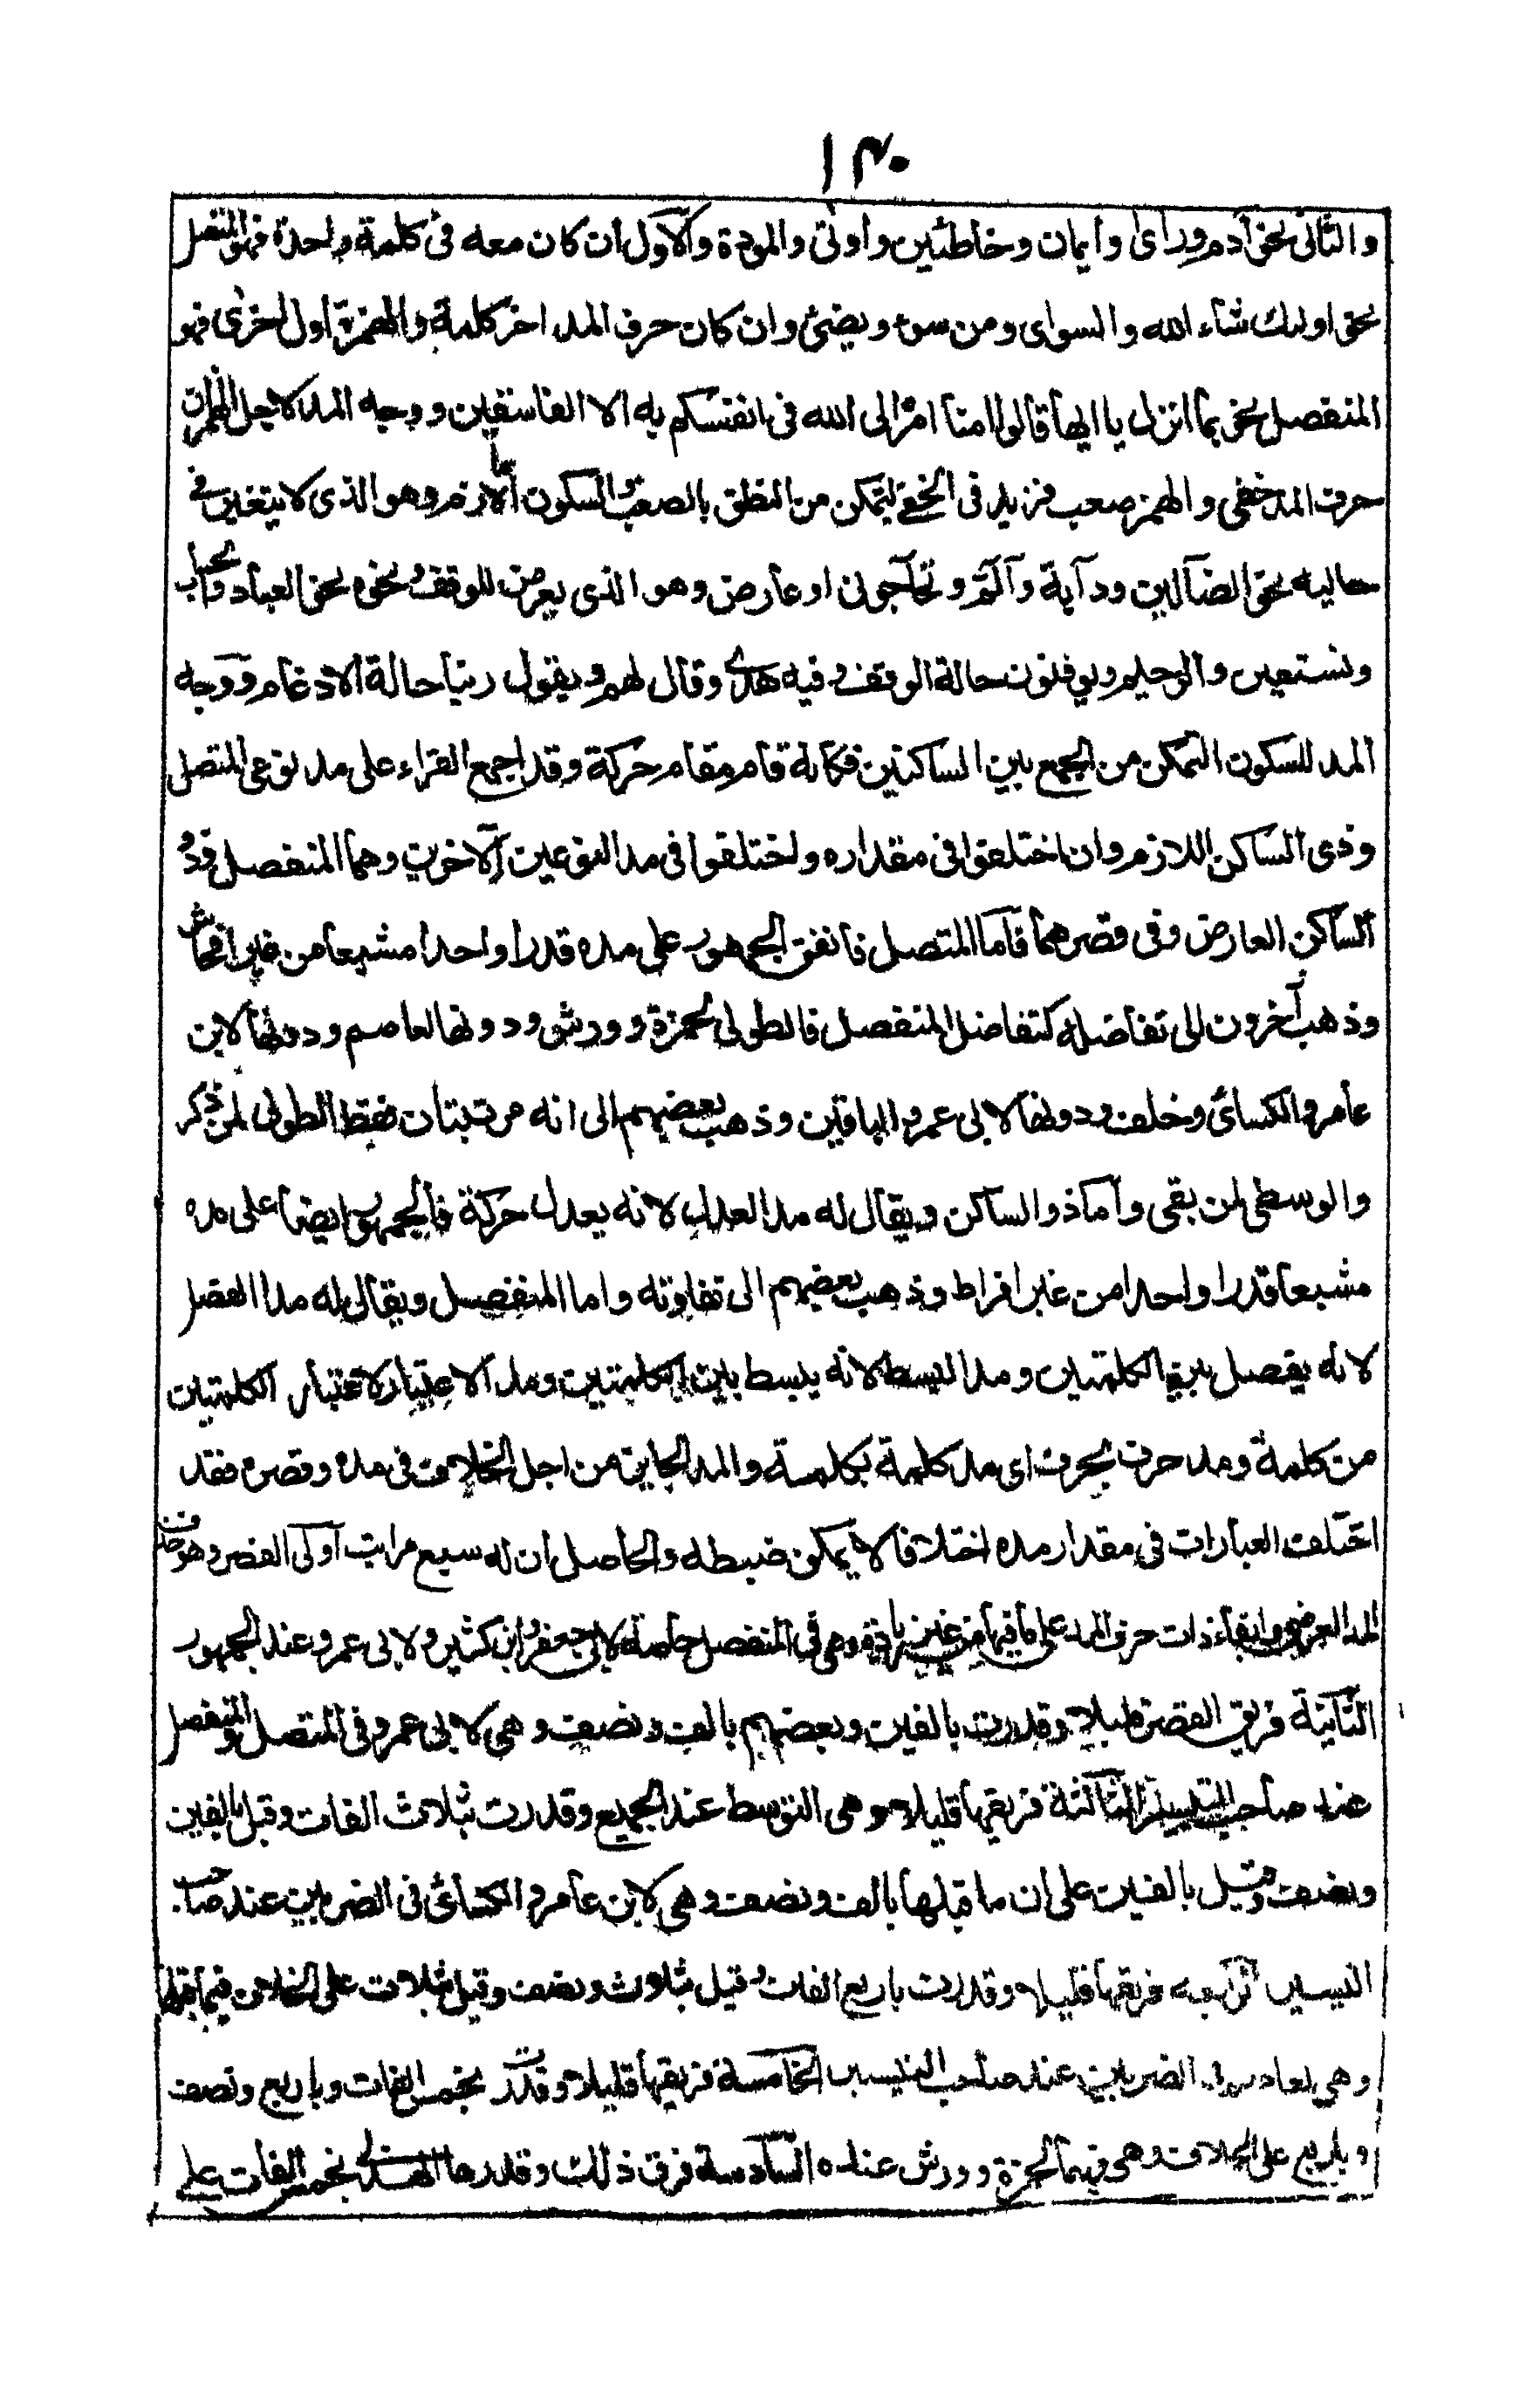 ١٣٠
والثانى نحو آدم وراى وايمان وخاطئين واوتى والمودة والاول ان كان معه فى كلمة واحدة فهو المتصل
نحو اولئك شاء الله والسواى ومن سوء ويضئ وان كان حرف المد اخر كلمة والهمزة اول اخرى فهو
المنفصل نحو بما انزل يا ايها قالوا امنا امره الى الله فى انفسكم به الا الفاسقين ووجه المد لاجل الهمز ان
حرف المد خفى والهمز صعب فزيد فى الخفى ليتمكن من النطق بالصعب والسكون اما لازم وهو الذى لا يتغير فى
حاليه نحو الضالين ودآبة وآلم وتحآجونى او عارض وهو الذى يعرض للوقف ونحوه نحو العباد والحساب
ونستعين والرحيم ويوقنون حالة الوقف وفيه هدى وقال لهم ويقول ربنا حالة الادغام ووجه
المد للسكون التمكن من الجمع بين الساكنين فكانه قام مقام حركة وقد اجمع القراء على مد نوعى المتصل
وذى الساكن اللازم وان اختلفوا فى مقداره واختلفوا فى مد النوعين الاخرين وهما المنفصل وذو
الساكن العارض وفى قصرهما فاما المتصل فاتفق الجمهور على مده قدرا واحدا مشبعا من غير افحاش
وذهب آخرون الى تفاضله كتفاضل المنفصل فالطولى لحمزة وورش ودونها لعاصم ودونها لابن
عامر والكسائى وخلف ودونها لابى عمرو والباقين وذهب بعضهم الى انه مرتبتان فقط الطولى لمن ذكر
والوسطى لمن بقى واما ذو الساكن ويقال له مد العدل لانه يعدل حركة فالجمهور ايضا على مده
مشبعا قدرا واحدا من غير افراط وذهب بعضهم الى تفاوته واما المنفصل ويقال له مد الفصل
لانه يفصل بين الكلمتين ومد البسط لانه يبسط بين الكلمتين ومد الاعتبار لاعتبار الكلمتين
من كلمة ومد حرف بحرف اى مد كلمة بكلمة والمد الجايز من اجل الخلاف فى مده وقصره فقد
اختلفت العبارات فى مقدار مده اختلافا لا يمكن ضبطه والحاصل ان له سبع مراتب اولى القصر وهو حذف
المد العرضى وابقاء ذات حرف المد على ما فيها من غير زيادة وهى فى المنفصل خاصة لابى جعفر وابن كثير ولابى عمرو عند الجمهور
الثانية فويق القصر قليلا وقدرت بالفين وبعضهم بالف ونصف وهى لابى عمرو فى المتصل والمنفصل
عند صاحب التيسير الثالثة فويقها قليلا وهى التوسط عند الجميع وقدرت بثلاث الفات وقيل بالفين
ونصف وقيل بالفين على ان ما قبلها بالف ونصف وهى لابن عامر والكسائى فى الضربين عند صاحب
التيسير الرابعه فويقها قليلا وقدرت باربع الفات وقيل بثلاث ونصف وقيل بثلاث على الخلاف فيما قبلها
وهى لعاصم فى الضربين عند صاحب التيسير الخامسة فويقها قليلا وقدرت بخمس الفات وباربع ونصف
وباربع على الخلاف وهى فيهما لحمزة وورش عنده السادسة فوق ذلك وقدرها الهذلى بخمس الفات على